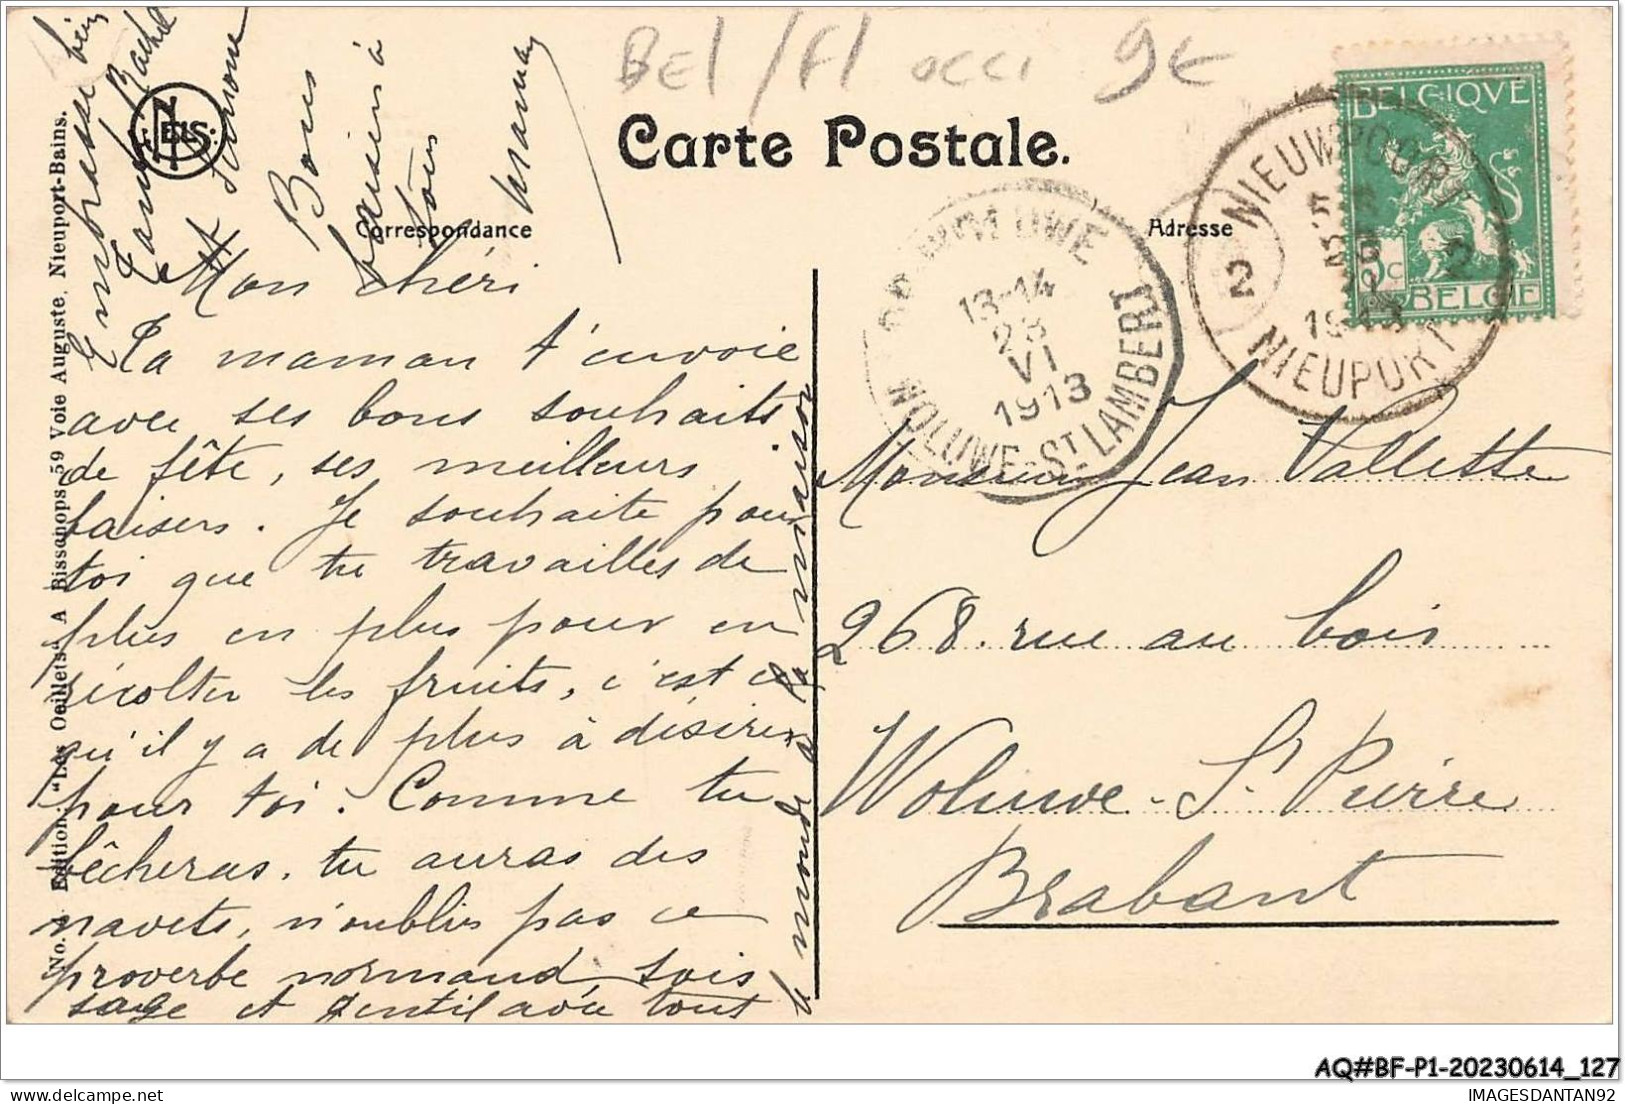 BEl / Fl occi 9€
Carte Postale.
Correspondance
Adresse
BELGIQVE
5c
BELGIE
NIEUWPOORT
2 2
1913
NIEUPORT
13-14
23
VI
1913
WOLUWE-ST LAMBERT
NELS
Mon chéri
Ta maman t'envoie
avec ses bons souhaits
de fête, ses meilleurs
baisers. Je souhaite pour
toi que tu travailles de
plus en plus pour en
récolter les fruits, c'est ce
qu'il y a de plus à désirer
pour toi. Comme tu
bêcheras, tu auras des
navets, n'oublies pas ce
proverbe normand sois
sage et gentil avec tout
le monde à la maison
Bons
baisers à
tous
maman
t'embrasse bien
et Simone
Monsieur Jean Vallette
268. rue au bois
Woluwe-St Pierre
Brabant
No. Edition "Les Oeillets" A Bissonops 59 Voie Auguste, Nieuport-Bains.
AQ#BF-P1-20230614_127
IMAGESDANTAN92